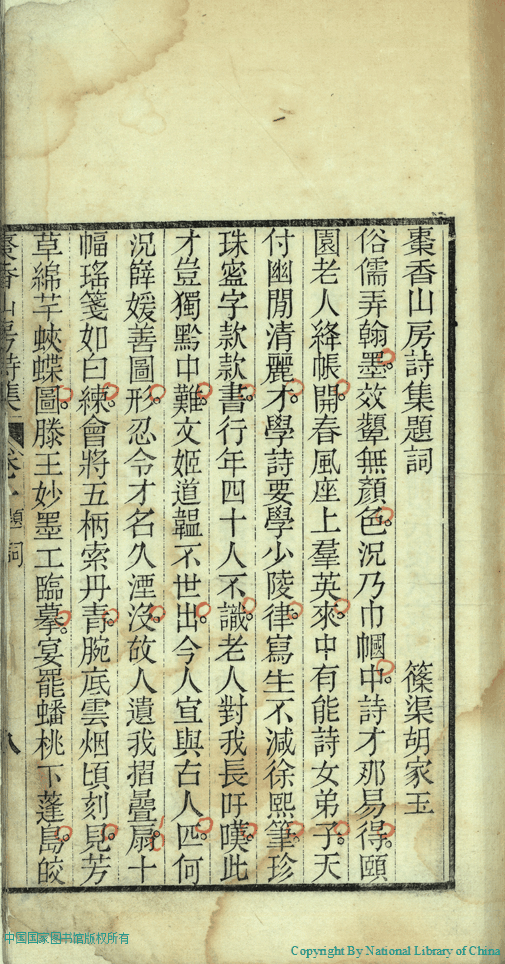 棗香山房詩集題詞 篠渠胡家玉
俗儒弄翰墨。效顰無顏色。況乃巾幗中。詩才那易得。頤
園老人絳帳開。春風座上羣英來。中有能詩女弟子。天
付幽閒清麗才。學詩要學少陵律。寫生不減徐熙筆。珍
珠蜜字款款書。行年四十人不識。老人對我長吁嘆。此
才豈獨黔中難。文姬道韞不世出。今人宜與古人匹。何
況薛媛善圖形。忍令才名久湮沒。故人遺我摺疊扇。十
幅瑤箋如白練。會將五柄索丹青。腕底雲烟頃刻見。芳
草綿芊蛺蝶圖。滕王妙墨工臨摹。宴罷蟠桃下蓬島。皎
棗香山房詩集 卷一 題詞 八
中国国家图书馆版权所有
Copyright By National Library of China